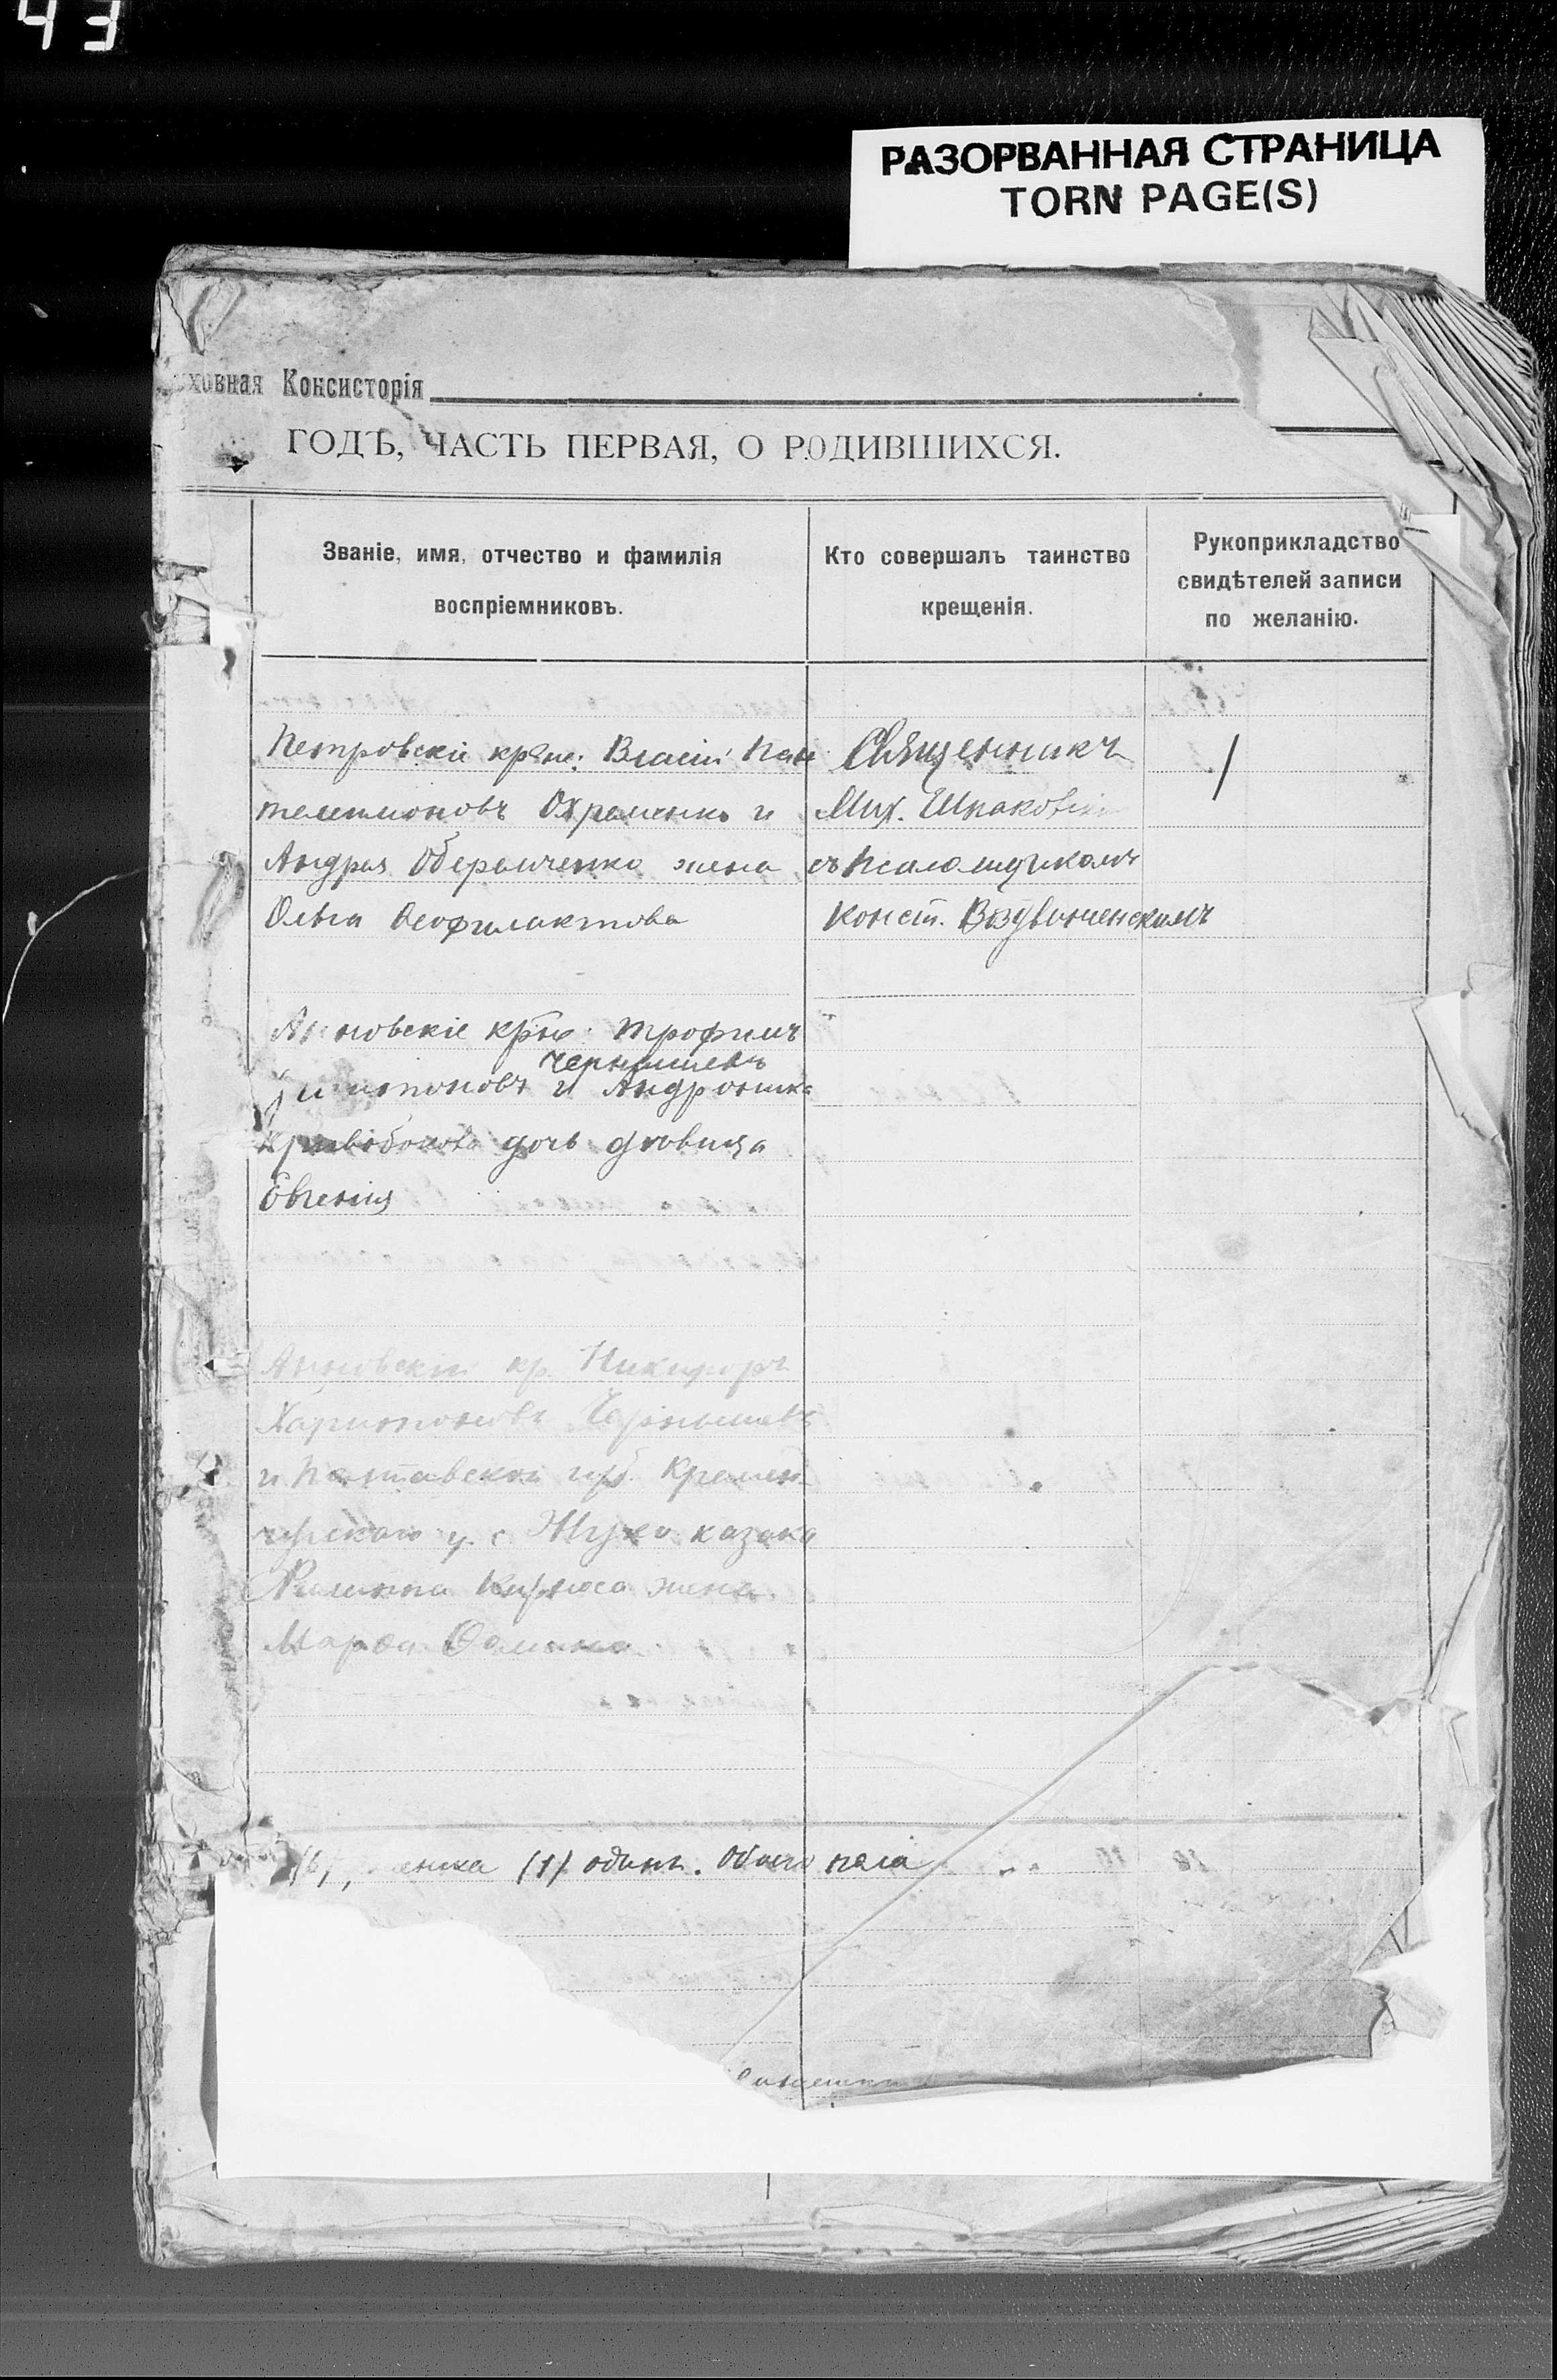 43
РАЗОРВАННАЯ СТРАНИЦА
TORN PAGE(S)
ховная Консисторія
ГОДЪ, ЧАСТЬ ПЕРВАЯ, О РОДИВШИХСЯ.
Званіе, имя, отчество и фамилія
воспріемниковъ.
Кто совершалъ таинство
крещенія.
Рукоприкладство
свидѣтелей записи
по желанію.
Петровскіе кр҃не: Власій Пан
телеимоновъ Охременко и
Андрея Оберемченко жена
Ольга Ѳеофилактова
Священникъ
Мих. Шпаковскі
съ псаломщикомъ
Конст. Воздвиженскимъ
Анновскіе кр҃не: Трофимъ
Чернышевъ
и Андроника
Кривобокова дочь дѣвица
Евгенія
Анновскій кр. Никифоръ
Харитоновъ Чернышевъ
и Полтавской губ. Кремен
чугскаго у. с. казака
жена
Марѳа
енска (1) одинъ. Обоего пола